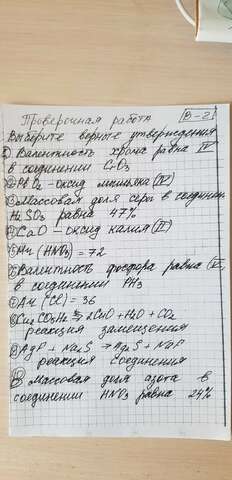 Проверочная работа В-2
Выберите верные утверждения
① Валентность хрома равна IV
в соединении CrO3
② PbO2 - оксид мышьяка (IV)
③ Массовая доля серы в соединен.
H2SO3 равна 47%
④ CaO - оксид калия (II)
⑤ Mr (HNO3) = 72
⑥ Валентность фосфора равна
в соединении PH3
⑦ Ar (Cl) = 36
⑧ → 2CuO + H2O + CO2
реакция замещения
⑨ AgF + Na2S → Ag2S + NaF
реакция соединения
⑩ Массовая доля азота в
соединении HNO3 равна 24%